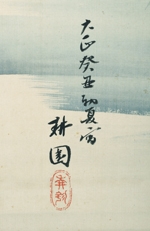 大正癸丑初夏寫
耕園